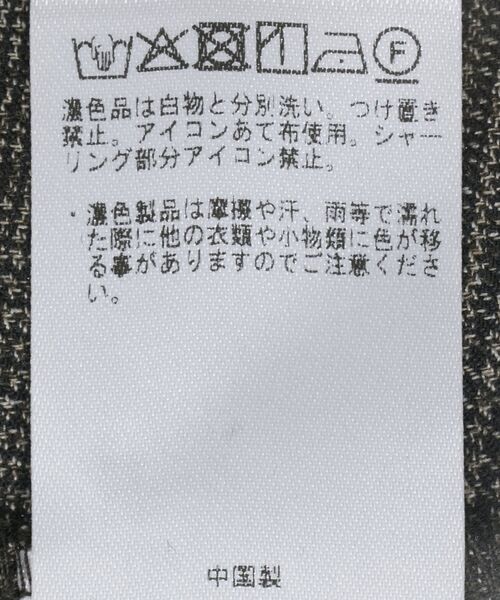 F
濃色品は白物と分別洗い。つけ置き
禁止。アイロンあて布使用。シャー
リング部分アイロン禁止。
・濃色製品は摩擦や汗、雨等で濡れ
た際に他の衣類や小物類に色が移
る事がありますのでご注意くださ
い。
中国製